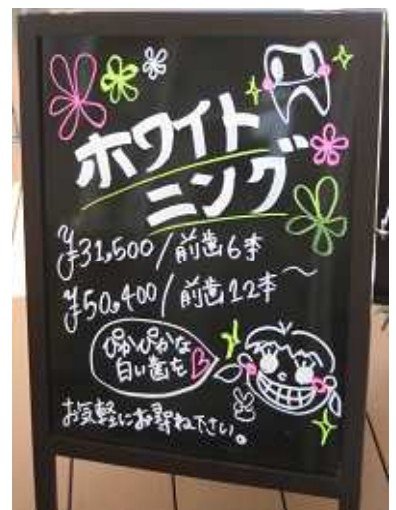 ホワイト
ニング
¥31,500/前歯6本
¥50,400/前歯12本〜
ぴかぴかな
白い歯を
お気軽にお尋ね下さい。